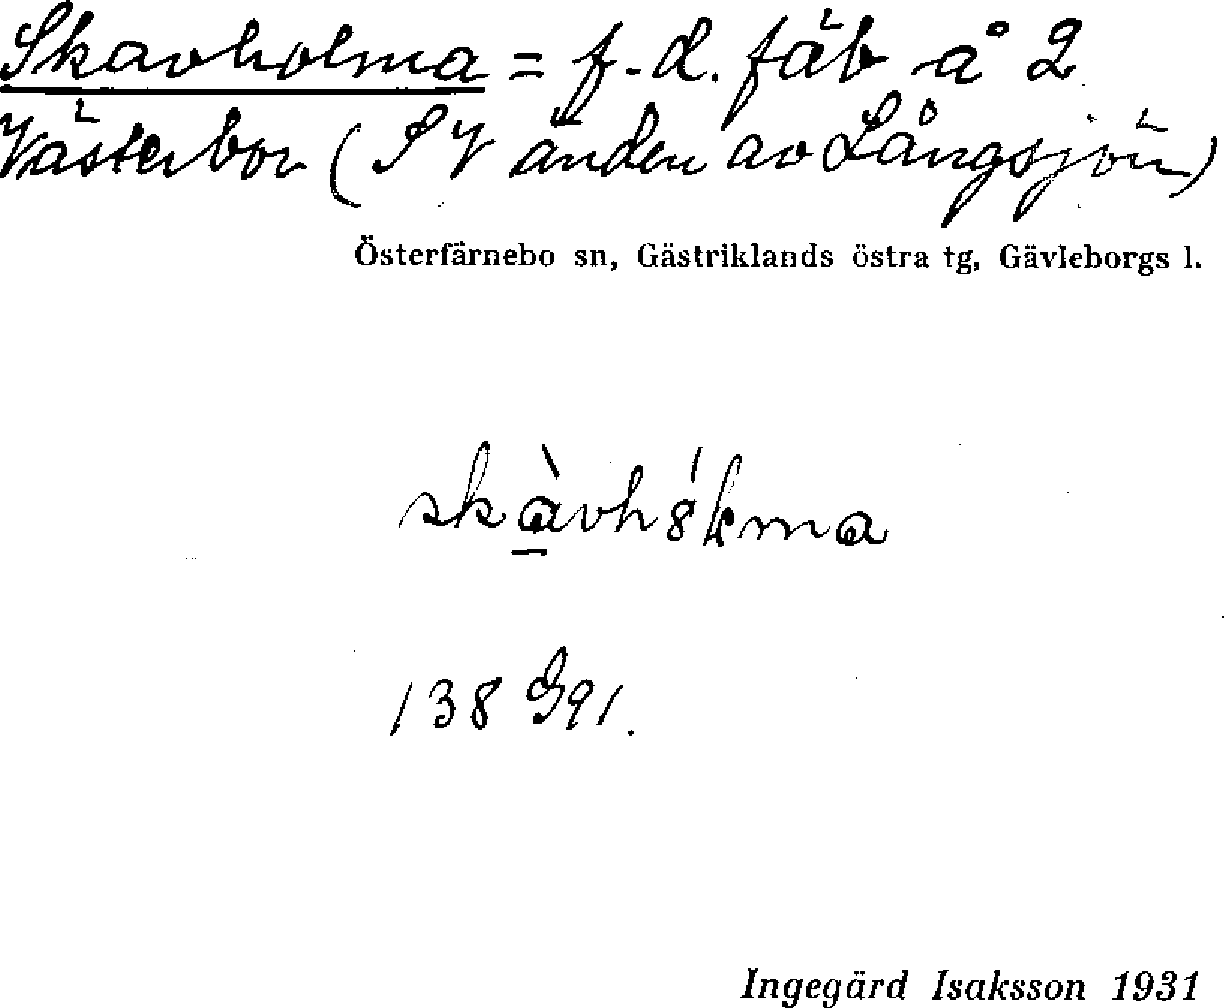 Skavholma = f.d. fäb å 2
Västerbor (SV änden av Långsjön)
Österfärnebo sn, Gästriklands östra tg, Gävleborgs l.
138 G91.
Ingegärd Isaksson 1931